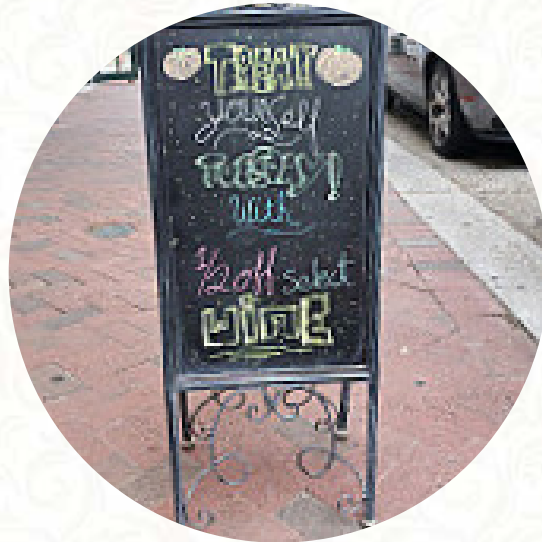 TREAT
yourself
TUESDAY!
With
1/2 off Select
WINE